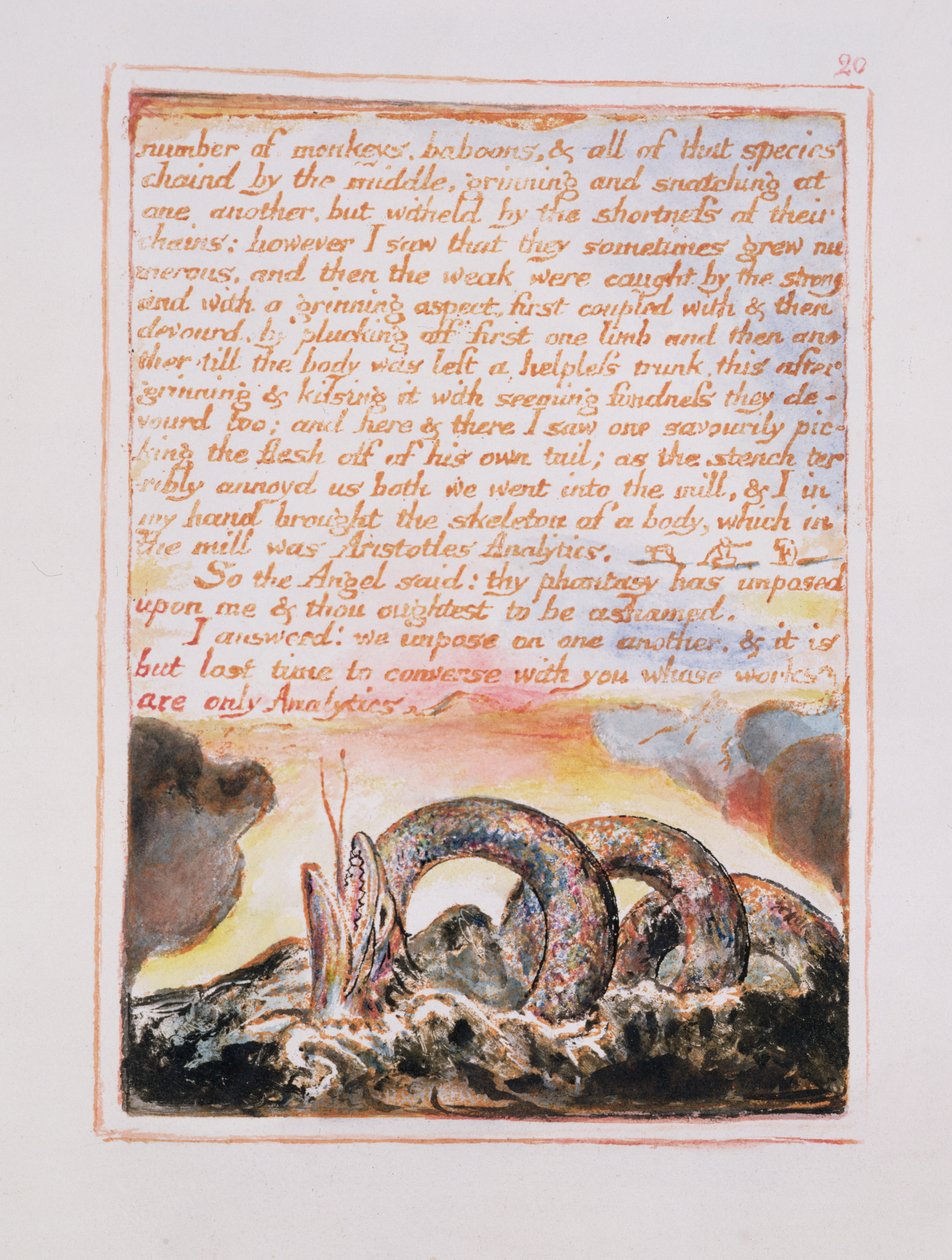 20
number of monkeys, baboons, & all of that species
chaind by the middle, grinning and snatching at
one another, but witheld by the shortness of their
chains: however I saw that they sometimes grew nu
merous, and then the weak were caught by the strong
and with a grinning aspect, first coupled with & then
devourd, by plucking off first one limb and then ano
ther till the body was left a helpless trunk. this after
grinning & kissing it with seeming fondness they de-
vourd too; and here & there I saw one savourily pic-
king the flesh off of his own tail; as the stench ter
ribly annoyd us both we went into the mill, & I in
my hand brought the skeleton of a body, which in
the mill was Aristotles Analytics.
So the Angel said: thy phantasy has imposed
upon me & thou oughtest to be ashamed.
I answerd: we impose on one another, & it is
but lost time to converse with you whose works
are only Analytics